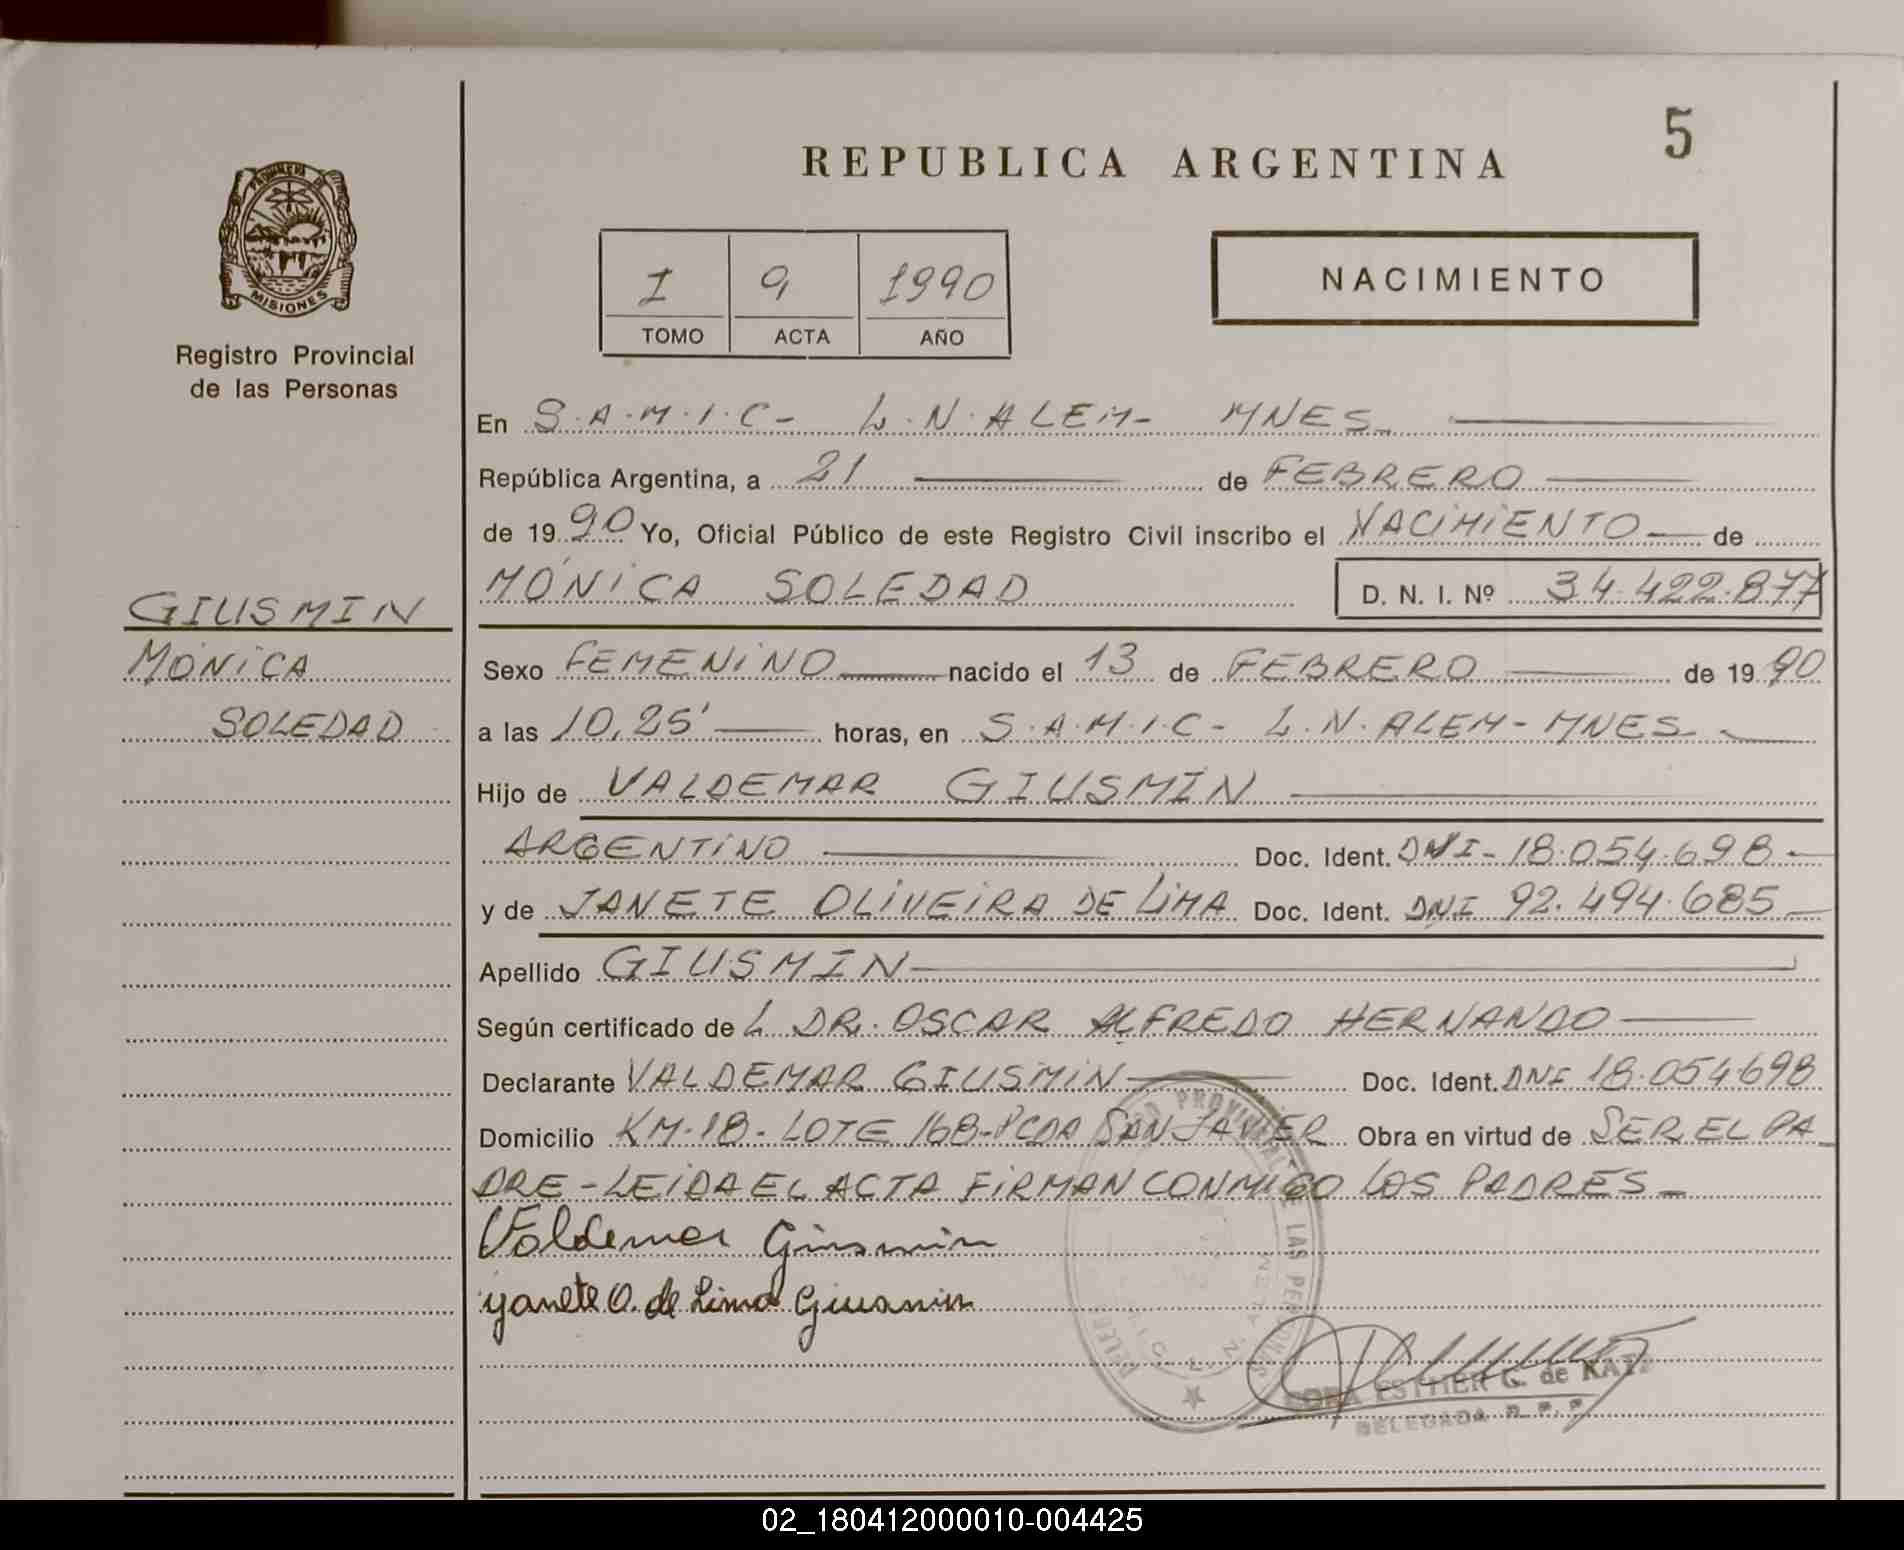 5
REPUBLICA ARGENTINA
PROVINCIA DE
MISIONES
Registro Provincial
de las Personas
I 9 1990
TOMO ACTA AÑO
NACIMIENTO
En S.A.M.I.C- L.N.ALEM- MNES
República Argentina, a 21 de FEBRERO
de 1990 Yo, Oficial Público de este Registro Civil inscribo el NACIMIENTO de
MÓNICA SOLEDAD D. N. I. Nº 34.422.877
GIUSMIN
MÓNICA
SOLEDAD
Sexo FEMENINO nacido el 13 de FEBRERO de 1990
a las 10,25' horas, en S.A.M.I.C- L.N.ALEM-MNES
Hijo de VALDEMAR GIUSMIN
ARGENTINO Doc. Ident. DNI-18.054.698-
y de JANETE OLIVEIRA DE LIMA Doc. Ident. DNI 92.494.685
Apellido GIUSMIN
Según certificado de L DR. OSCAR ALFREDO HERNANDO
Declarante VALDEMAR GIUSMIN Doc. Ident. DNI 18.054.698
Domicilio KM-18-LOTE 168-PCDA SAN JAVIER Obra en virtud de SER EL PA
DRE-LEIDA EL ACTA FIRMAN CONMIGO LOS PADRES-
Valdemar Giusmin
yanete O. de Lima Giusmin
ESTHER G. de KATZ
DELEGADA R. P. P.
02_180412000010-004425